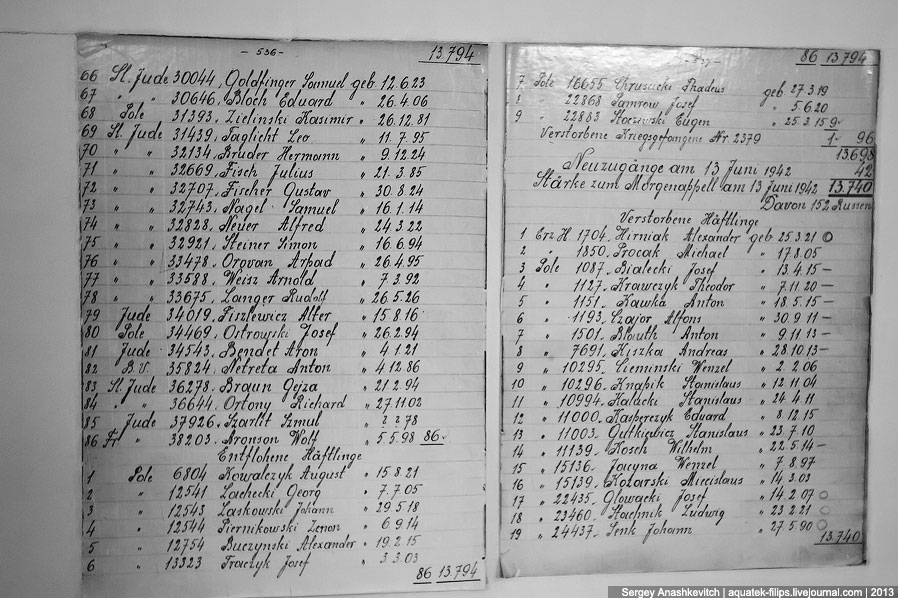 - 536 -
13.794
66 Sl. Jude 30044, Goldfinger Samuel geb. 12.6.23
67 " " 30646, Bloch Eduard " 26.4.06
68 Pole 31393, Zielinski Kasimir " 26.12.81
69 Sl. Jude 31439, Taglicht Leo " 11.7.95
70 " " 32134, Bruder Hermann " 9.12.24
71 " " 32669, Fisch Julius " 21.3.85
72 " " 32707, Fischer Gustav " 30.8.24
73 " " 32743, Nagel Samuel " 16.1.14
74 " " 32828, Neuer Alfred " 24.3.22
75 " " 32921, Steiner Simon " 16.6.94
76 " " 33478, Orovan Arpad " 26.4.95
77 " " 33588, Weisz Arnold " 7.3.92
78 " " 33675, Langer Rudolf " 26.5.26
79 Jude 34019, Piszlewicz Alter " 15.8.16
80 Pole 34469, Ostrowski Josef " 26.2.94
81 Jude 34543, Bendet Aron " 4.1.21
82 B.V. 35824, Netreta Anton " 4.12.86
83 Sl. Jude 36278, Braun Gejza " 21.2.94
84 " " 36644, Ortony Richard " 27.11.02
85 Jude 37926, Szarlit Szmul " 2.2.78
86 Fr " 38203, Aronson Wolf " 5.5.98 86.-
Entflohene Häftlinge
1 Pole 6804 Kowalczyk August " 15.8.21
2 " 12541 Lachecki Georg " 7.7.05
3 " 12543 Laskowski Johann " 29.5.18
4 " 12544 Piernikowski Zenon " 6.9.14
5 " 12754 Buczynski Alexander " 19.2.15
6 " 13323 Traczyk Josef " 3.3.03
86 13.794
86 13.794
7 Pole 16655 Chrusicki Thadeus geb 27.3.19
" 22868 Pamrow Josef " 5.6.20
9 " 22883 Eugen " 25.3.15 9.-
Verstorbene Kriegsgefangene Nr. 2379 1.- 96
13698
Neuzugänge am 13 Juni 1942 42
Stärke zum Morgenappell am 13 Juni 1942 13.740
Davon 152 Russen
Verstorbene Häftlinge
1 Erz.H. 1704, Hirniak Alexander geb 25.3.21
2 " 1850, Procak Michael " 17.8.05
3 Pole 1087, Bialecki Josef " 13.4.15 -
4 " 1127, Krawczyk Theodor " 7.11.20 -
5 " 1151, Kawka Anton " 18.5.15 -
6 " 1193, Czajor Alfons " 30.9.11 -
7 " 1501, Blauth Anton " 9.11.13 -
8 " 7691, Kyszka Andreas " 28.10.13 -
9 " 10295, Cieminski Wenzel " 2.2.06
10 " 10296, Knapik Stanislaus " 12.11.04
11 " 10994, Kalacki Stanislaus " 24.4.11
12 " 11000, Kasperczyk Eduard " 8.12.15
13 " 11003, Gutkiewicz Stanislaus " 23.7.10
14 " 11139, Kosch Wilhelm " 22.5.14 -
15 " 15136, Jacyna Wenzel " 7.8.97
16 " 15139, Kotarski Miecislaus " 14.3.03
17 " 22435, Glowacki Josef " 14.2.07
18 " 23460, Stachnik Ludwig " 23.2.21
19 " 24437, Senk Johann " 27.5.90
13.740
Sergey Anashkevitch | aquatek-filips.livejournal.com | 2013